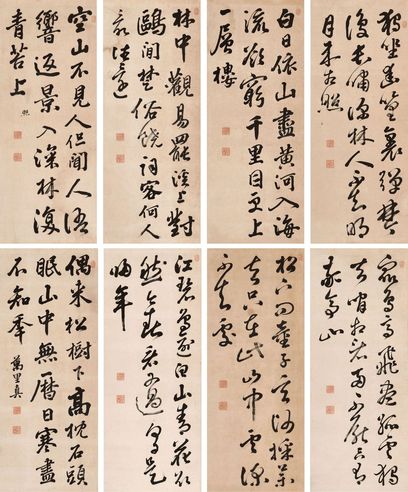 獨坐幽篁裏彈琴
復長嘯深林人不知明
月來相照
白日依山盡黃河入海
流欲窮千里目更上
一層樓
林中觀易罷溪上對
鷗閒楚俗饒詞客何人
最往還
空山不見人但聞人語
響返景入深林復
青苔上 照
眾鳥高飛盡孤雲獨
去閒相看兩不厭只有
敬亭山
松下問童子言師採藥
去只在此山中雲深
不知處
江碧鳥逾白山青花欲
然今春看又過何日是
歸年
偶來松樹下高枕石頭
眠山中無曆日寒盡
不知年 萬里真